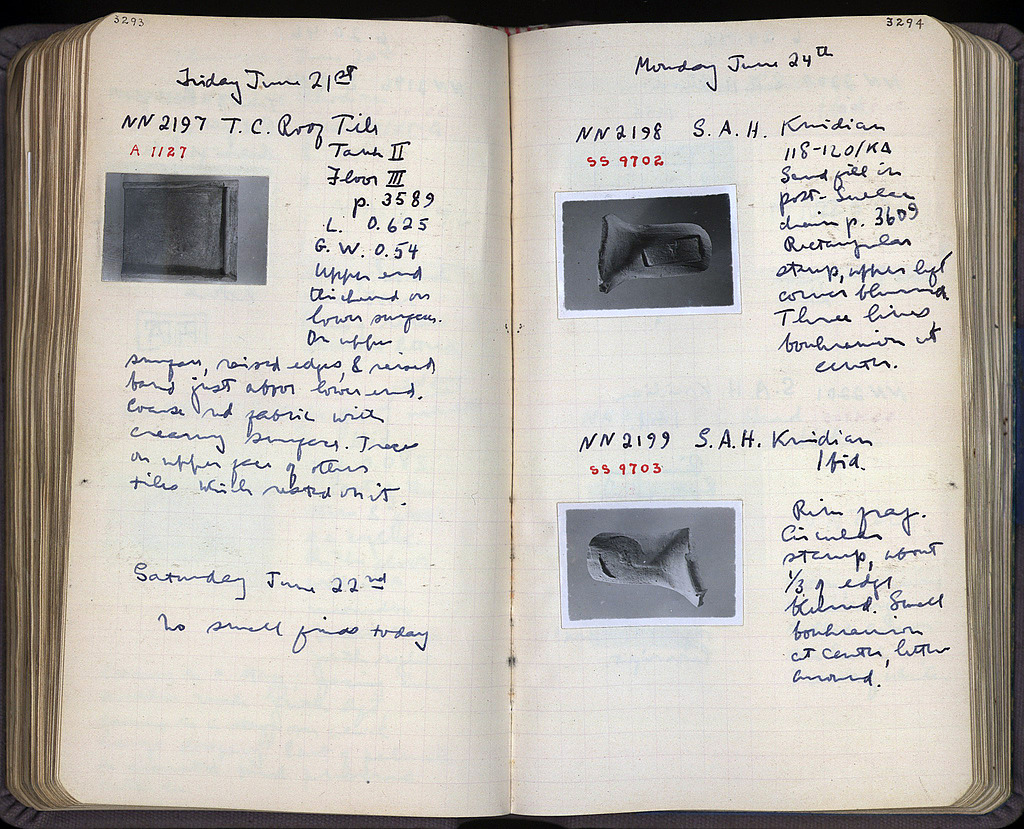 3293
Friday June 21st
NN 2197 T. C. Roof Tile
A 1127
Tank II
Floor III
p. 3589
L. 0.625
G. W. 0.54
Upper end
thickened on
lower surface.
On upper
surface, raised edges, & raised
band just above lower end.
Coarse red fabric with
creamy surface. Traces
on upper face of other
tiles which rested on it.
Saturday June 22nd
No small finds today
3294
Monday June 24th
NN 2198 S. A. H. Knidian
SS 9702
118-120/KA
Sand fill in
post-Sullan
drain p. 3609
Rectangular
stamp, upper left
corner blurred.
Three lines
boukranion at
center.
NN 2199 S. A. H. Knidian
SS 9703
Ibid.
Rim frag.
Circular
stamp, about
1/3 of edge
blurred. Small
boukranion
at center, letters
around.